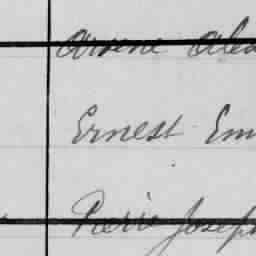 Arsene Alex
Ernest Em
Pierre Joseph